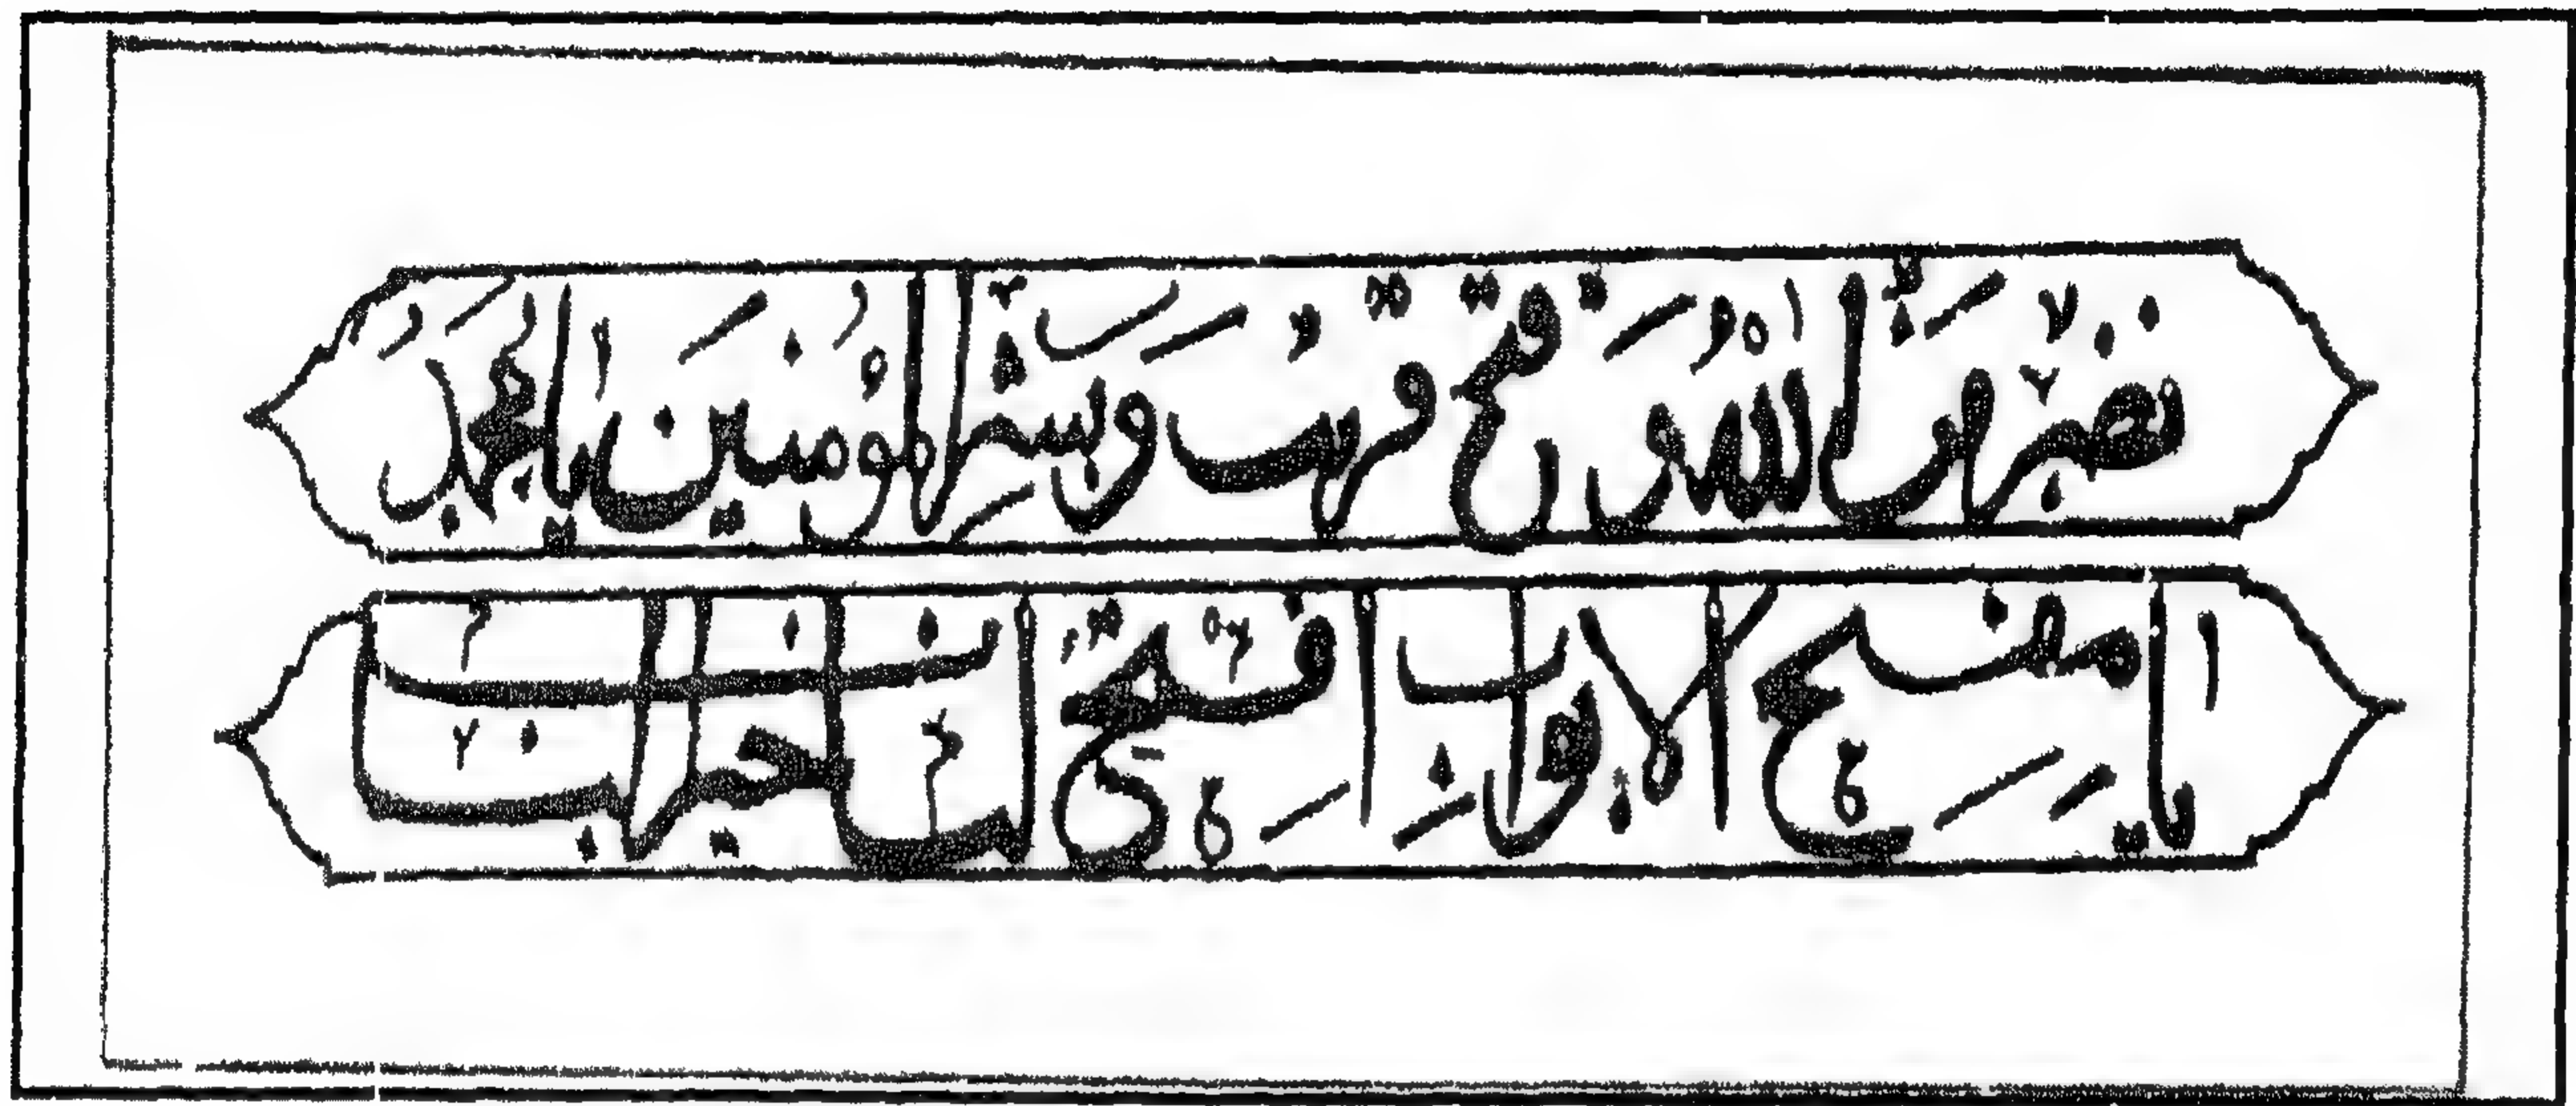 نصر من الله و فتح قريب و بشر المومنين يا محمد
يا مفتح الابواب افتح لنا خير الباب